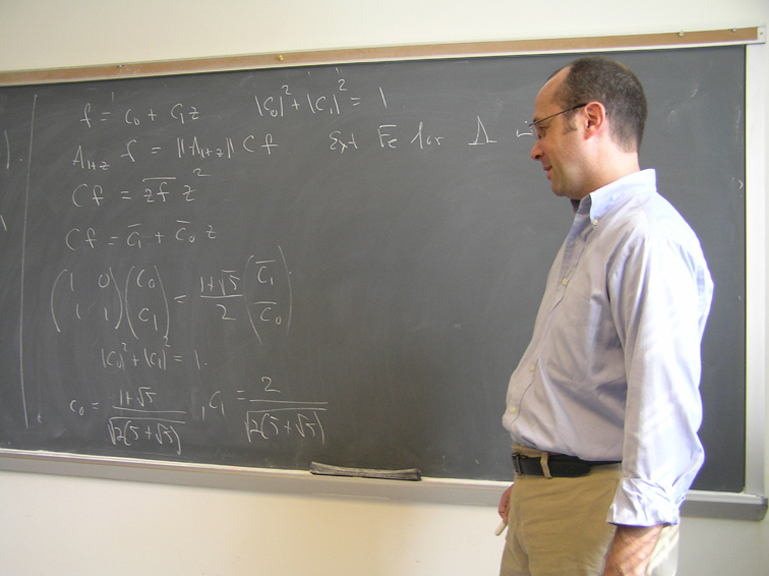 f = c₀ + c₁z   |c₀|² + |c₁|² = 1
A₁₊z f = ||A₁₊z|| C f   Ext for
Cf = \overline{zf} z²
Cf = c̄₁ + c̄₀ z
(1 0; 1 1)(c₀; c₁) = (1+√5)/2 (c̄₁; c̄₀)
|c₀|² + |c₁|² = 1.
c₀ = (1+√5)/√(2(5+√5)) , c₁ = 2/√(2(5+√5))